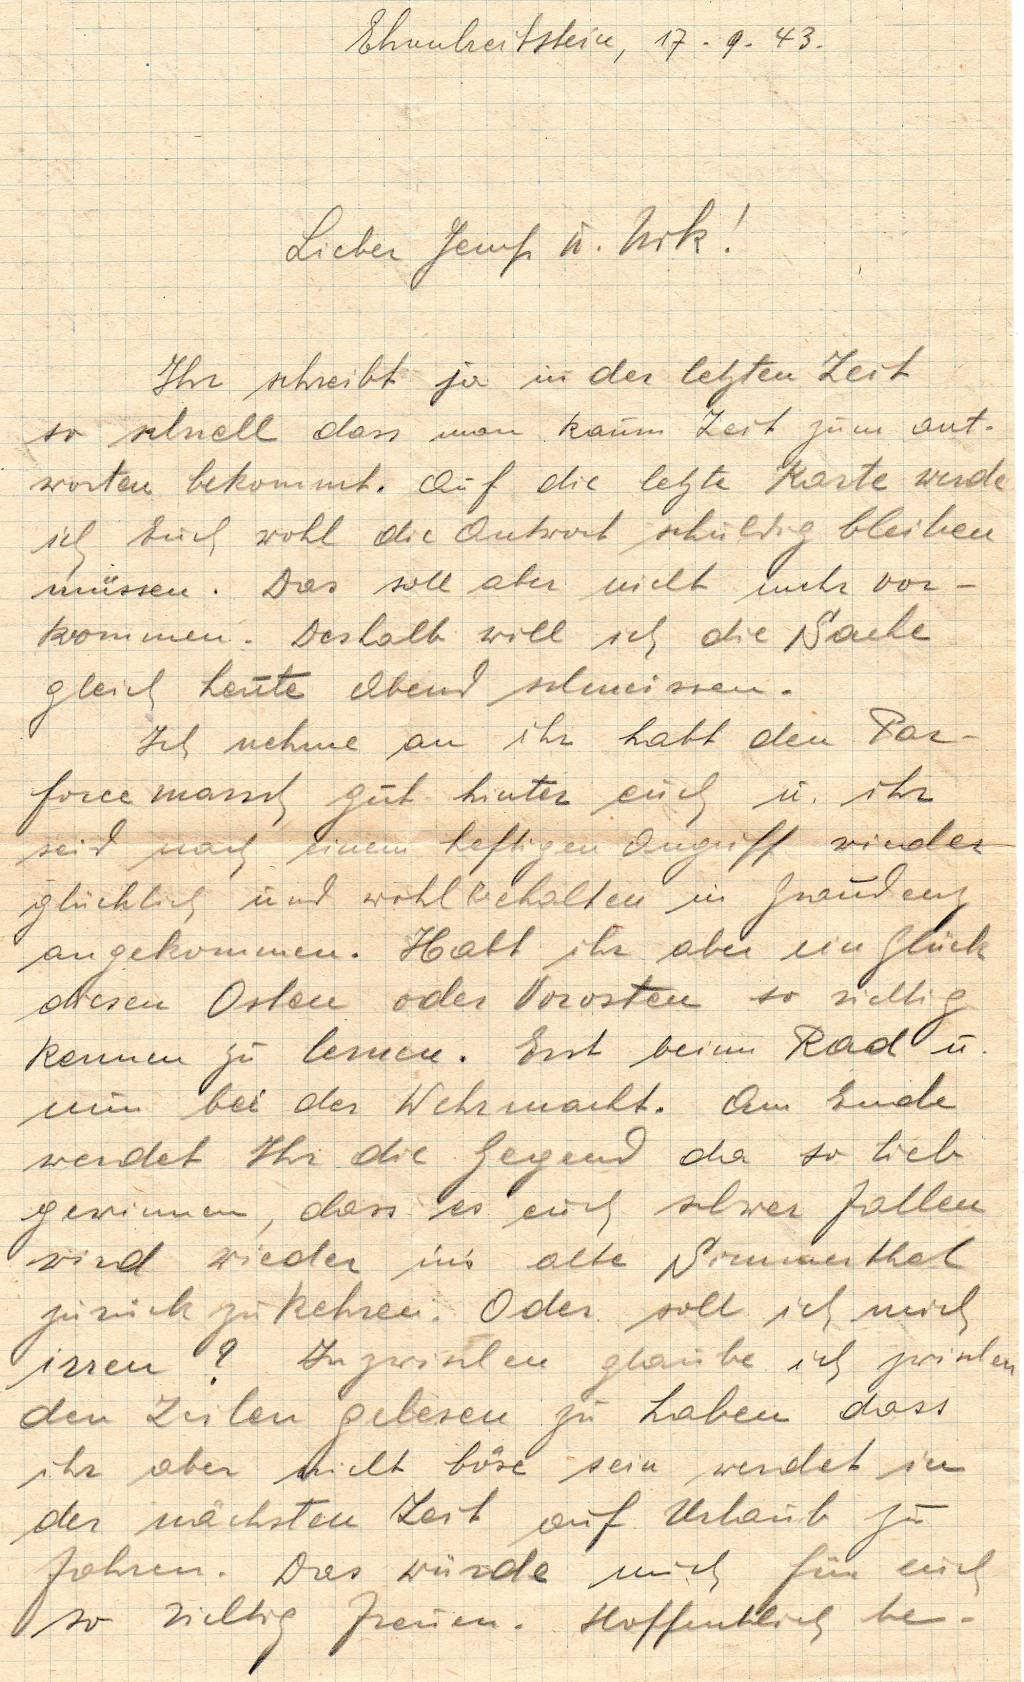 Ehrenbreitstein, 17.9.43.
Lieber Jemp u. Nik!
Ihr schreibt ja in der letzten Zeit
so schnell dass man kaum Zeit zum ant-
worten bekommt. Auf die letzte Karte werde
ich Euch wohl die Antwort schuldig bleiben
müssen. Das soll aber nicht mehr vor-
kommen. Deshalb will ich die Sache
gleich heute Abend schmeissen.
Ich nehme an ihr habt den Par-
forcemarsch gut hinter euch u. ihr
seid nach einem heftigen Angriff wieder
glücklich und wohlbehalten in Graudenz
angekommen. Habt ihr aber ein Glück
diesen Osten oder Vorosten so richtig
kennen zu lernen. Erst beim Rad u.
nun bei der Wehrmacht. Am Ende
werdet Ihr die Gegend da so lieb
gewinnen, dass es euch schwer fallen
wird wieder ins alte Simmerthal
zurück zu kehren. Oder soll ich mich
irren? Inzwischen glaube ich zwischen
den Zeilen gelesen zu haben dass
ihr aber nicht böse sein werdet in
der nächsten Zeit auf Urlaub zu
fahren. Das würde mich für euch
so richtig freuen. Hoffentlich be-